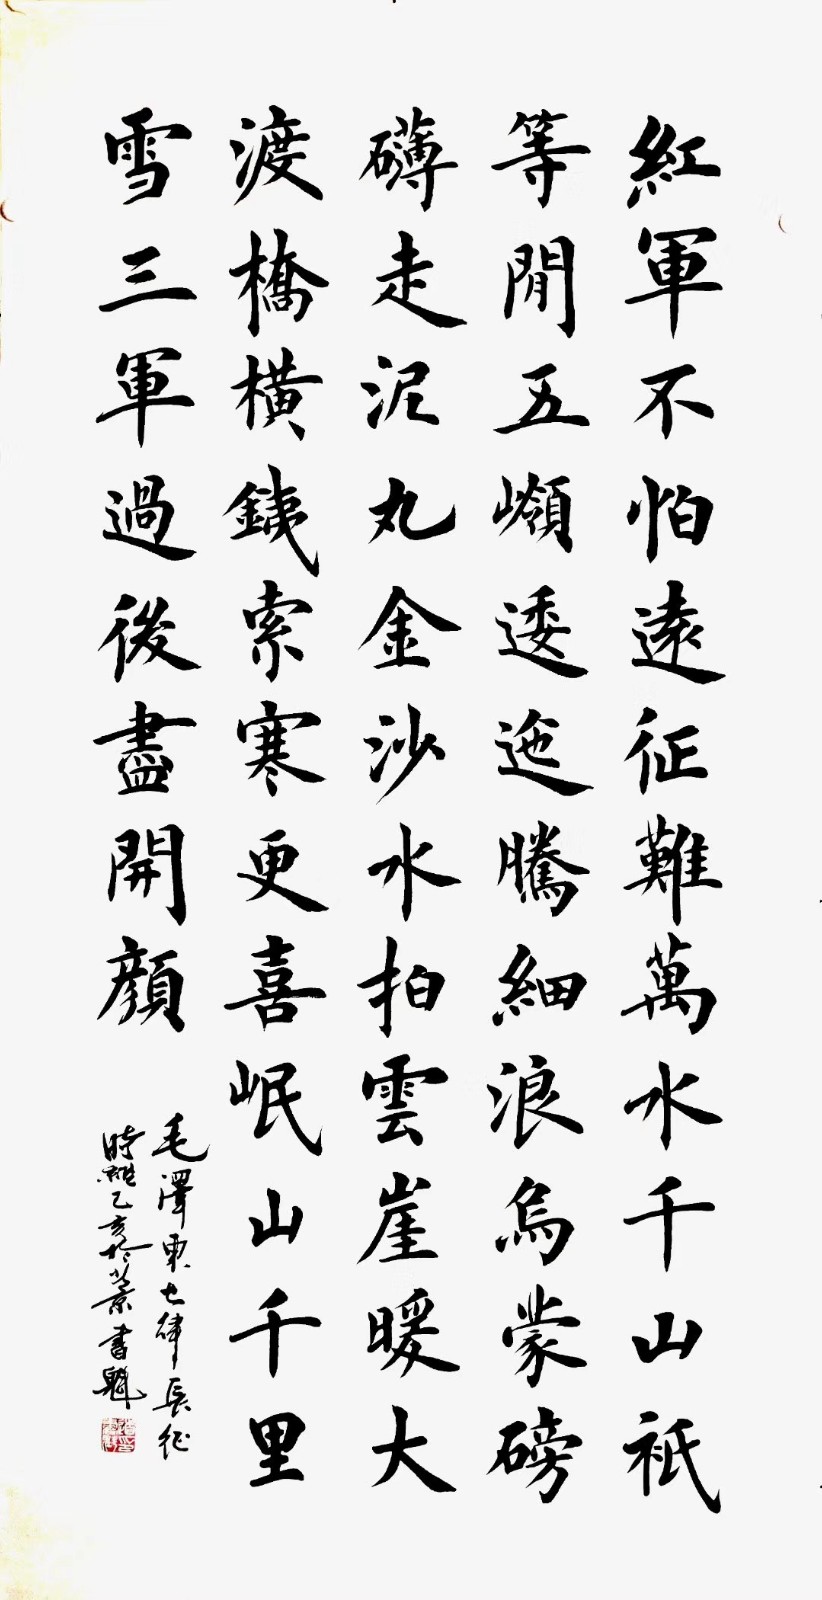 紅軍不怕遠征難萬水千山祇
等閒五嶺逶迤騰細浪烏蒙磅
礴走泥丸金沙水拍雲崖暖大
渡橋橫銕索寒更喜岷山千里
雪三軍過後盡開顏
毛澤東七律長征
時維乙亥於